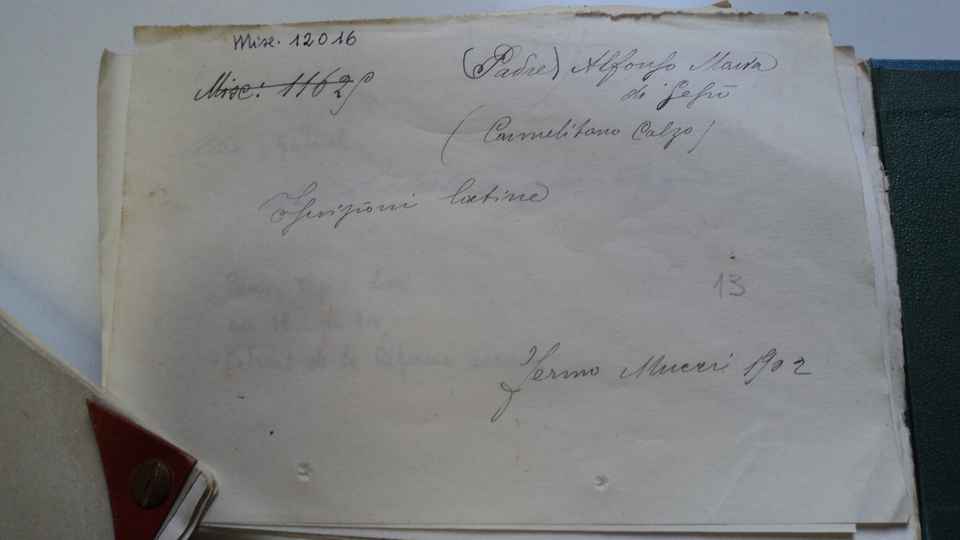 Misc. 12016
Misc. 11629
(Padre) Alfonso Maria
di Gesù
(Carmelitano Calzo)
Iscrizioni latine
13
Fermo Mucci 1902